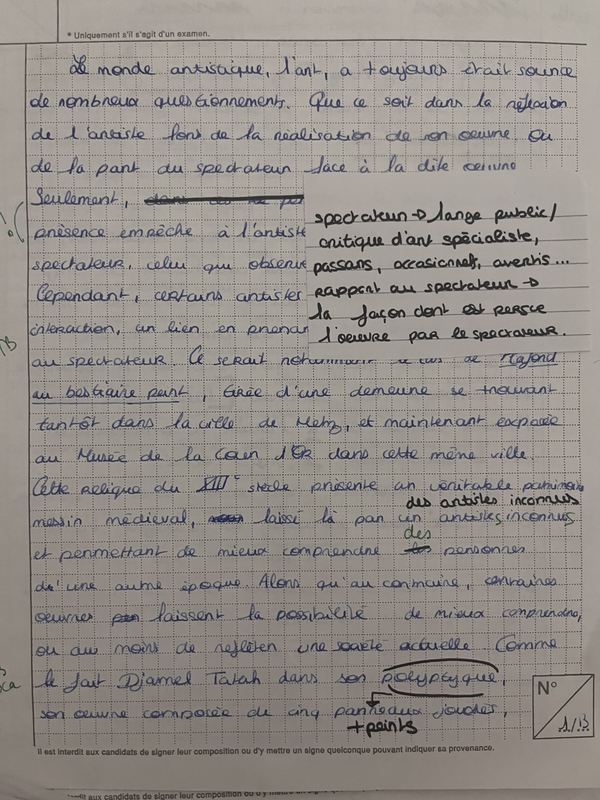 * Uniquement s'il s'agit d'un examen.
Le monde antisaique, l'art, a toujours était source
de nombreux questionnements. Que ce soit dans la réflexion
de l'artiste lors de la réalisation de son oeuvre. Ou
de la part du spectateur face à la dite oeuvre
Seulement,
présence empêche à l'artiste
spectateur, celui qui observe
Cependant, certains artistes
interaction, un lien en prenan
au spectateur. Ce serait notamment le cas de
spectateur → large public/
critique d'art spécialiste,
passans, occasionnels, avertis...
rapport au spectateur →
la façon dont est perçue
l'oeuvre par le spectateur.
au bestiaire peint, tirée d'une demeure se trouvant
tantôt dans la ville de Metz, et maintenant exposée
au Musée de la Cour d'Or dans cette même ville.
Cette relique du XIIIe siècle présente un véritable patrimoine
des artistes inconnus
messin médiéval, laissé là par un artistes inconnus
des
et permettant de mieux comprendre personnes
de l'une autre époque. Alors qu'au contraire, certaines
oeuvres laissent la possibilité de mieux comprendre,
ou au moins de refléter une société actuelle. Comme
le fait Djamel Tatah dans son polyptyque,
son oeuvre composée de cinq panneaux joudés,
+ peints
N°
1/3
Il est interdit aux candidats de signer leur composition ou d'y mettre un signe quelconque pouvant indiquer sa provenance.